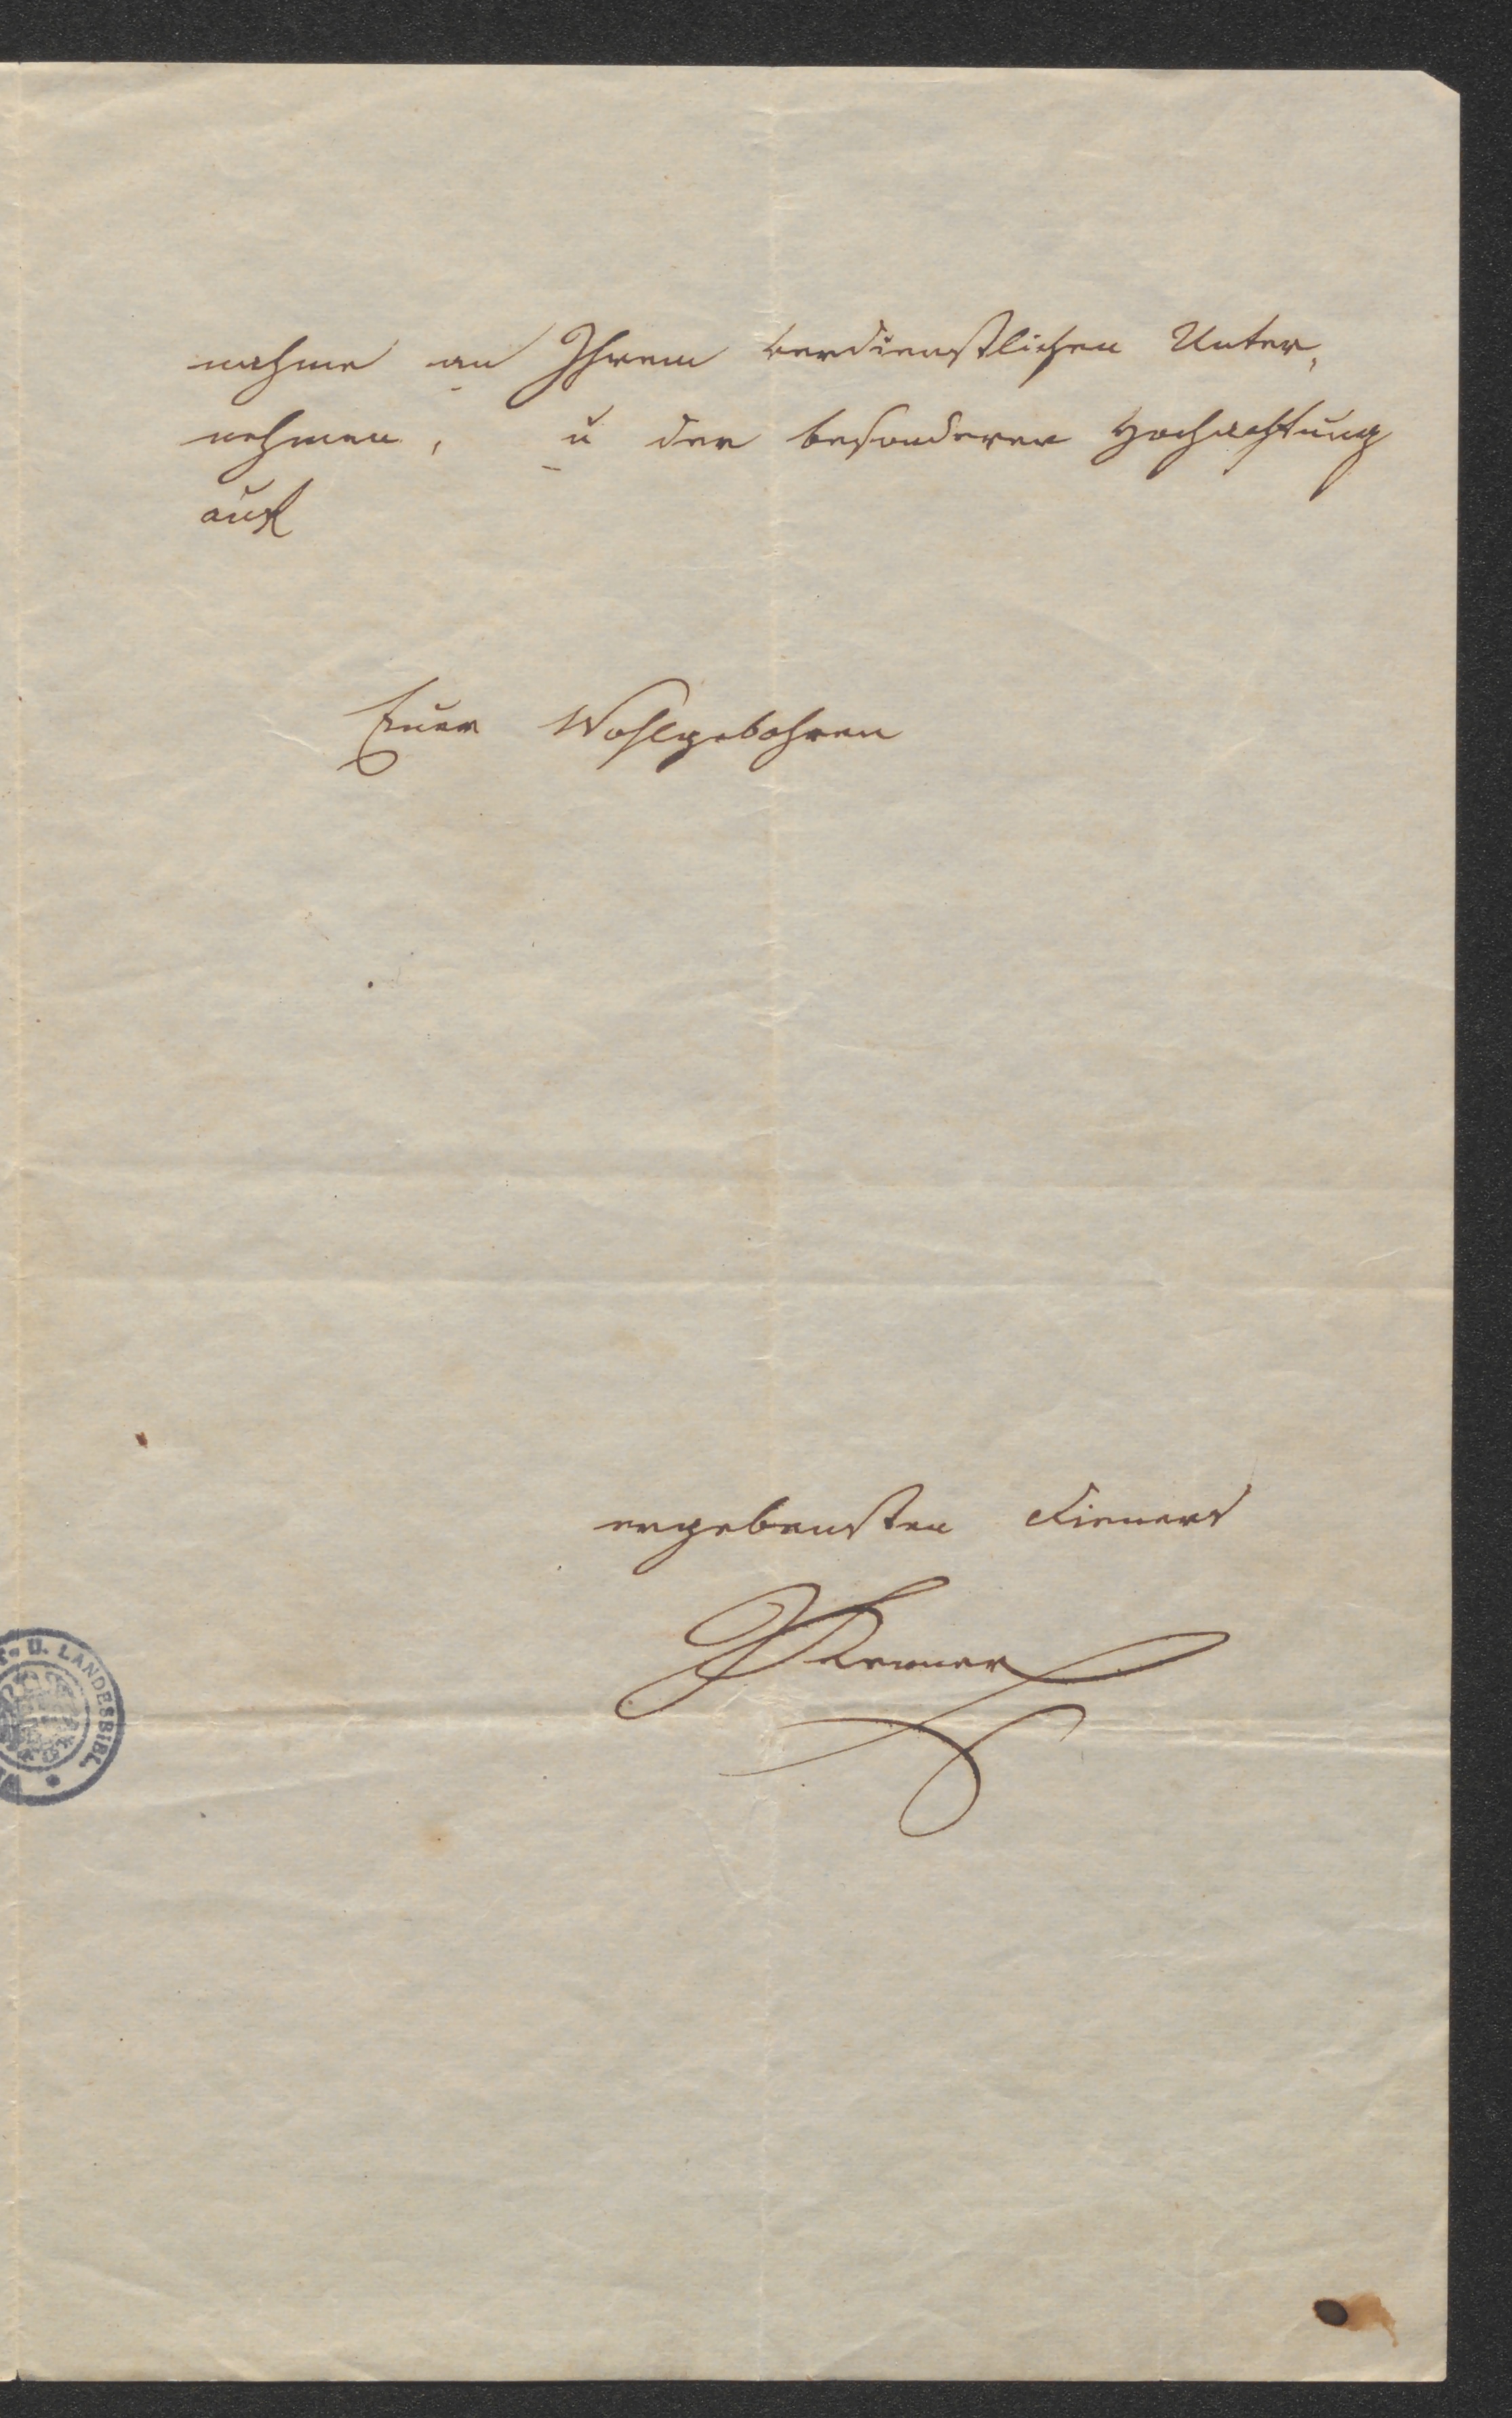 nahme an Ihrem verdienstlichen Unter,
nehmen, u der besonderen Hochachtung
aus
Euer Wohlgebohren
ergebensten Dieners
U. LANDESBIBL.